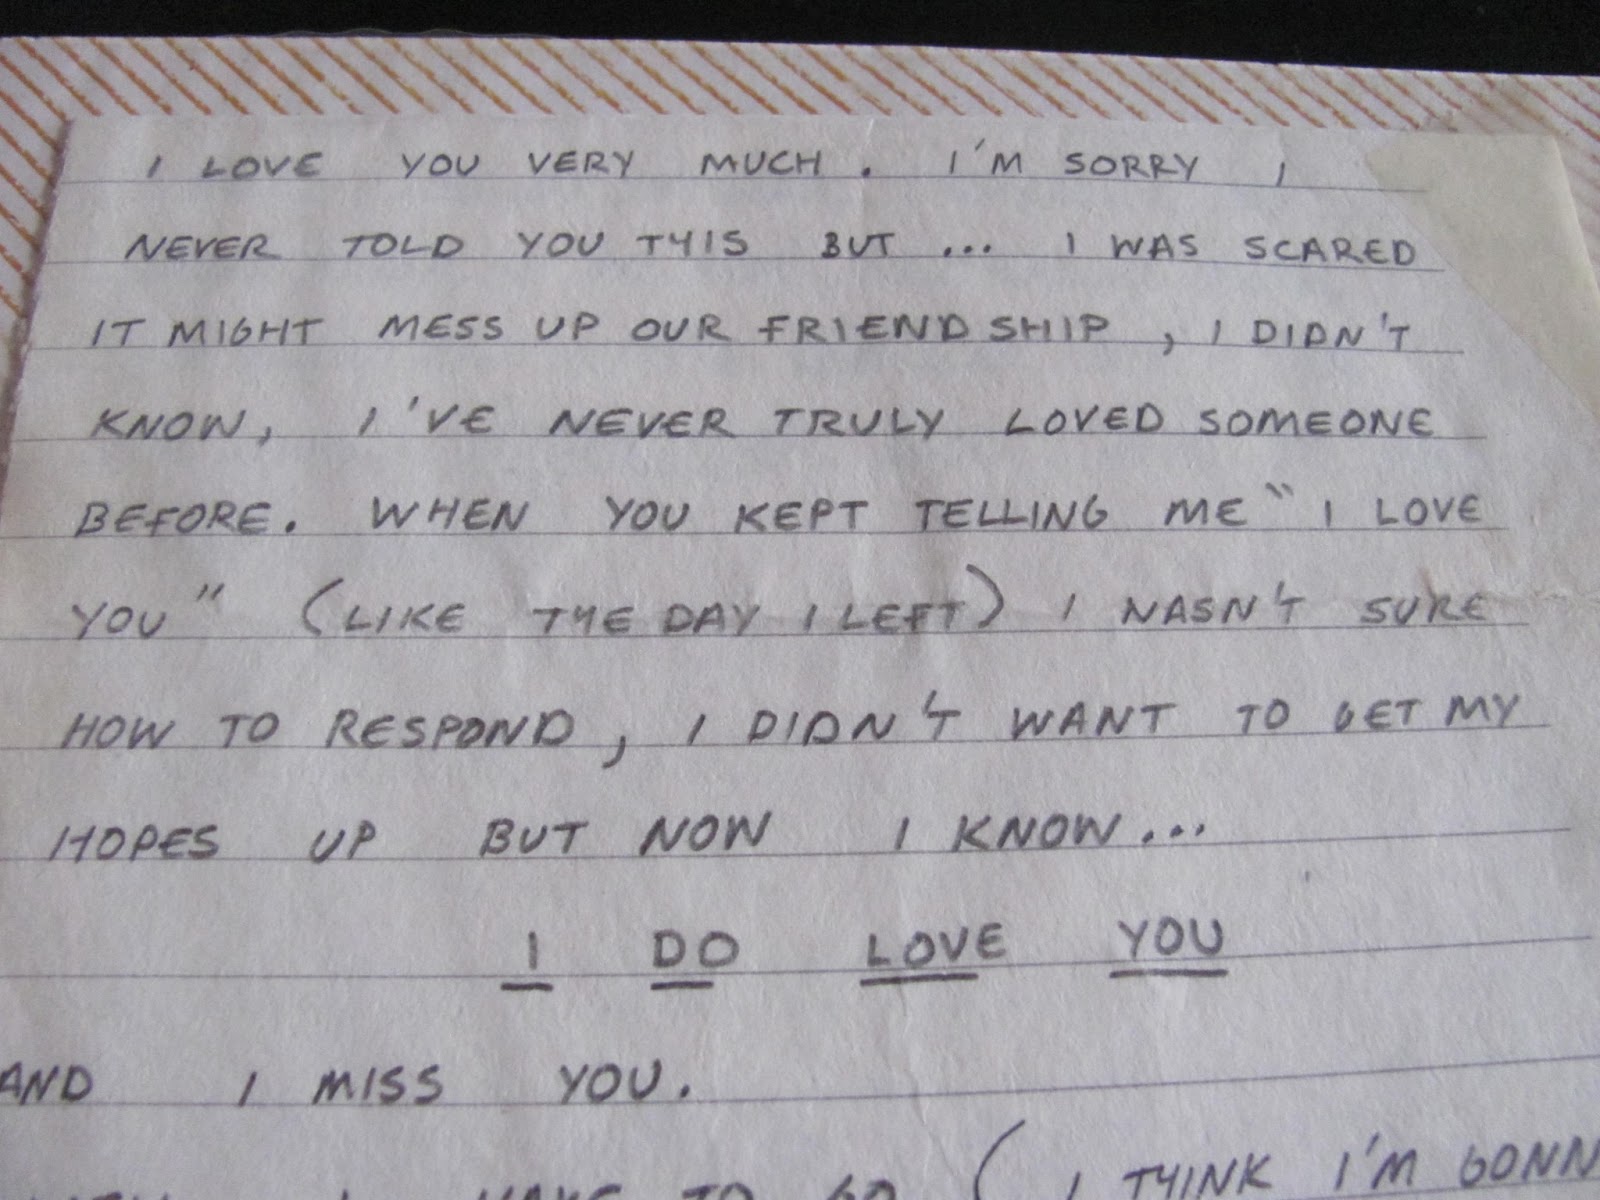 I LOVE YOU VERY MUCH. I'M SORRY I
NEVER TOLD YOU THIS BUT... I WAS SCARED
IT MIGHT MESS UP OUR FRIENDSHIP, I DIDN'T
KNOW, I'VE NEVER TRULY LOVED SOMEONE
BEFORE. WHEN YOU KEPT TELLING ME "I LOVE
YOU" (LIKE THE DAY I LEFT) I WASN'T SURE
HOW TO RESPOND, I DIDN'T WANT TO GET MY
HOPES UP BUT NOW I KNOW...
I DO LOVE YOU
AND I MISS YOU.
I HAVE TO GO (I THINK I'M GONN